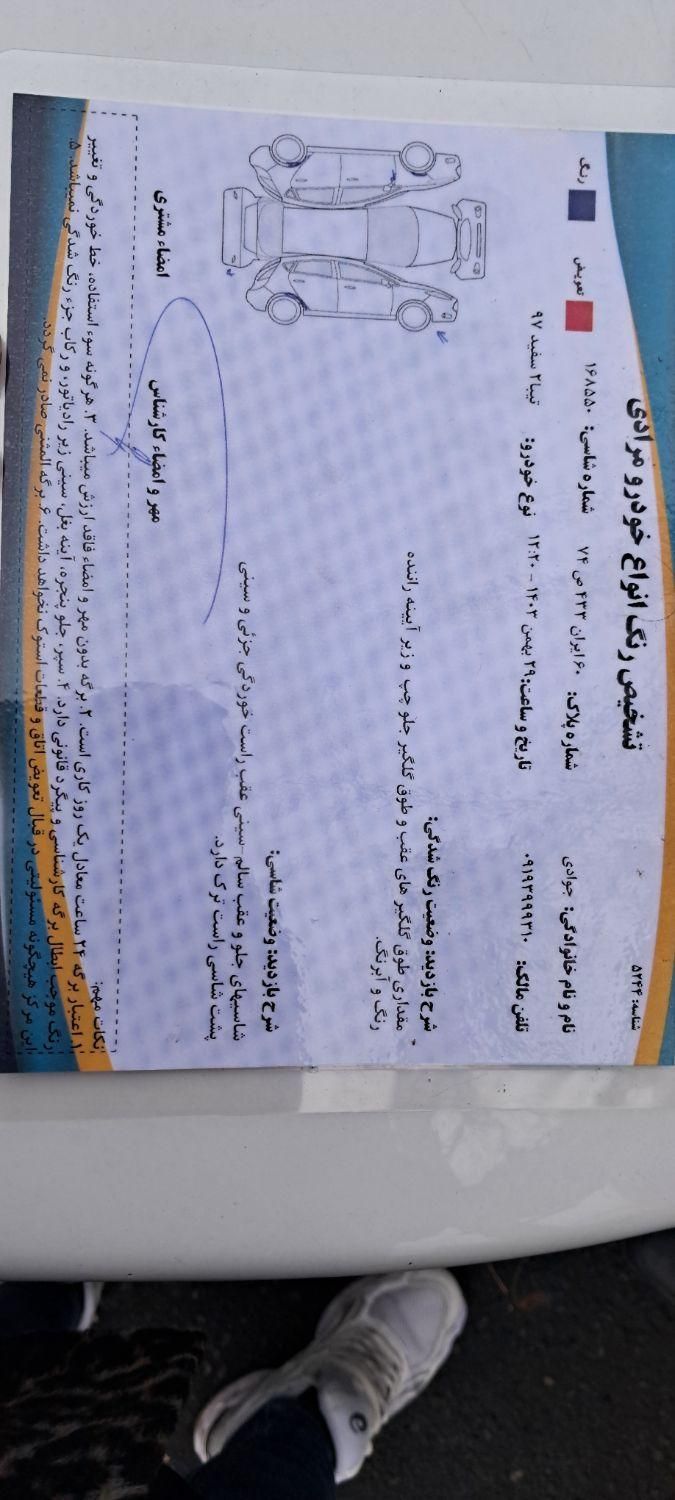 شناسه: ۵۲۴۴
تشخیص رنگ انواع خودرو مرادی
نام و نام خانوادگی: جوادی
شماره پلاک: ۶۰ ایران ۴۳۳ ص ۷۴
شماره شاسی: ۱۶۸۵۵۰
تلفن مالک: ۰۹۱۹۳۹۹۹۳۱۰
تاریخ و ساعت: ۲۹ بهمن ۱۴۰۳ - ۱۲:۲۰
نوع خودرو: تیبا۲ سفید ۹۷
تعویض
رنگ
شرح بازدید: وضعیت رنگ شدگی:
مقداری طوق گلگیر های عقب و طوق گلگیر جلو چپ و زیر آیینه راننده
رنگ و آبرنگ.
شرح بازدید: وضعیت شاسی:
شاسیهای جلو و عقب سالم- سینی عقب راست خوردگی جزئی و سینی
پشت شاسی راست ترک دارد.
مهر و امضاء کارشناس
امضاء مشتری
نکات مهم:
۱. اعتبار برگه ۲۴ ساعت معادل یک روز کاری است. ۲. برگه بدون مهر و امضاء فاقد ارزش میباشد. ۳. هرگونه سوء استفاده، خط خوردگی و تغییر
رنگ موجب ابطال برگه کارشناسی و پیگرد قانونی دارد. ۴. سپر، جلو پنجره، آینه بغل، سینی زیر رادیاتور، و رکاب جزء رنگ شدگی نمیباشد. ۵.
این مرکز هیچگونه مسئولیتی در قبال تعویض اتاق و قطعات استوک نخواهد داشت. ۶. برگه المثنی صادر نمی گردد.